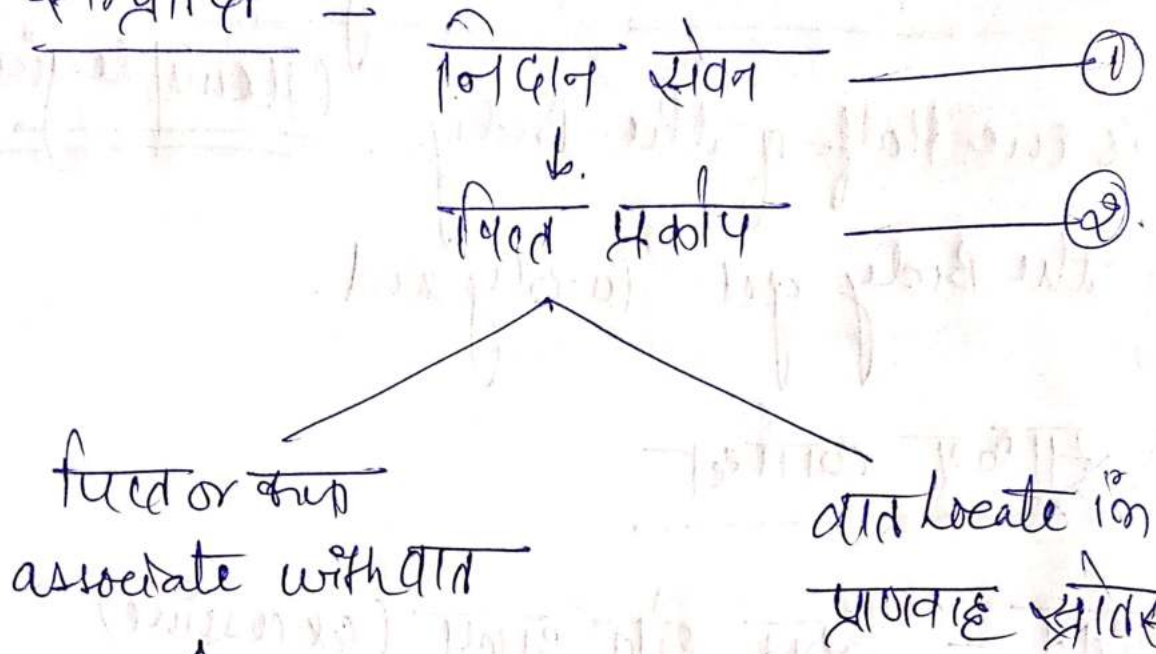 सम्प्राप्ति –
निदान सेवन — ①
↓
पित्त प्रकोप — ②.
पित्त or कफ
associate with वात
वात Locate in
प्राणवाह स्रोतस